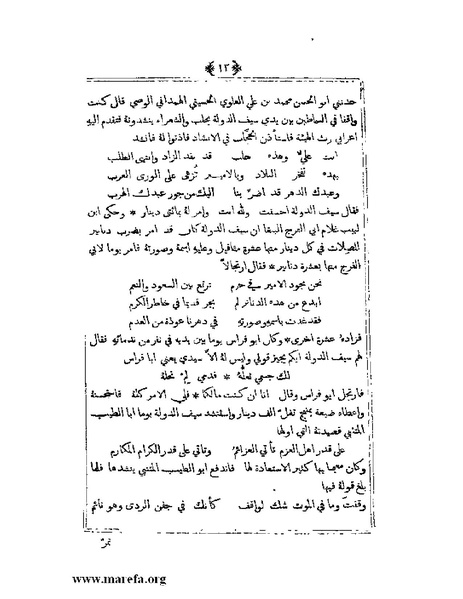 ﴿ ١٣ ﴾
حدثني ابو الحسن محمد بن علي العلوي الحسيني الهمداني الوصي قال كنت
واقفا في السماطين بين يدي سيف الدولة بحلب والشعراء ينشدونه فتقدم اليه
اعرابي رث الهيئة فاستأذن الحجاب في الانشاد فاذنوا له فانشد
انت علي وهذه حلب قد نفد الزاد وانتهى الطلب
بهذه تفخر البلاد وبالامير تزهى على الورى العرب
وعبدك الدهر قد اضر بنا اليك من جور عبدك الهرب
فقال سيف الدولة احسنت ولله انت وامر له بمائتي دينار * وحكى ابن
لبيب غلام ابي الفرج الببغا ان سيف الدولة كان قد امر بضرب دنانير
للصلات في كل دينار منها عشرة مثاقيل وعليه اسمه وصورته فامر يوما لابي
الفرج منها بعشرة دنانير * فقال ارتجالاً
نحن بجود الامير في حرم نرتع بين السعود والنعم
ابدع من هذه الدنانير لم يجر قديما في خاطر الكرم
فقد غدت باسمه وصورته في دهرنا عوذة من العدم
فزاده عشرة اخرى * وكان ابو فراس يوما بين يديه في نفر من ندمائه فقال
لهم سيف الدولة ايكم يجيز قولي وليس له الا سيدي يعني ابا فراس
لك جسمي تعله * فدمي لم تحله
فارتجل ابو فراس وقال انا ان كنت مالكا * فلي الامر كله فاستحسنه
واعطاه ضيعة بمنبج تغل الف دينار واستنشد سيف الدولة يوما ابا الطيب
المتنبي قصيدته التي اولها
على قدر اهل العزم تأتي العزائم وتأتي على قدر الكرام المكارم
وكان معجبا بها كثير الاستعادة لها فاندفع ابو الطيب المتنبي ينشدها فلما
بلغ قوله فيها
وقفت وما في الموت شك لواقف كأنك في جفن الردى وهو نائم
تمر
www.marefa.org